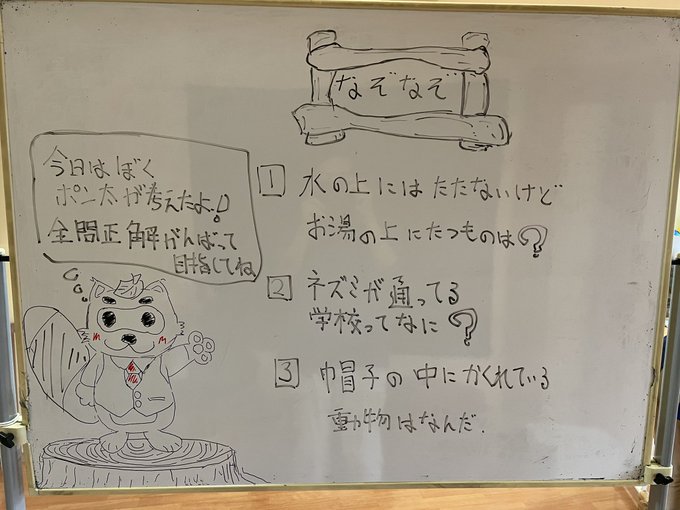 なぞなぞ
今日はぼく
ポン太が考えたよ!
全問正解がんばって
目指してね
1 水の上にはたたないけど
お湯の上にたつものは?
2 ネズミが通ってる
学校ってなに?
3 巾冒子の中にかくれている
動物はなんだ.